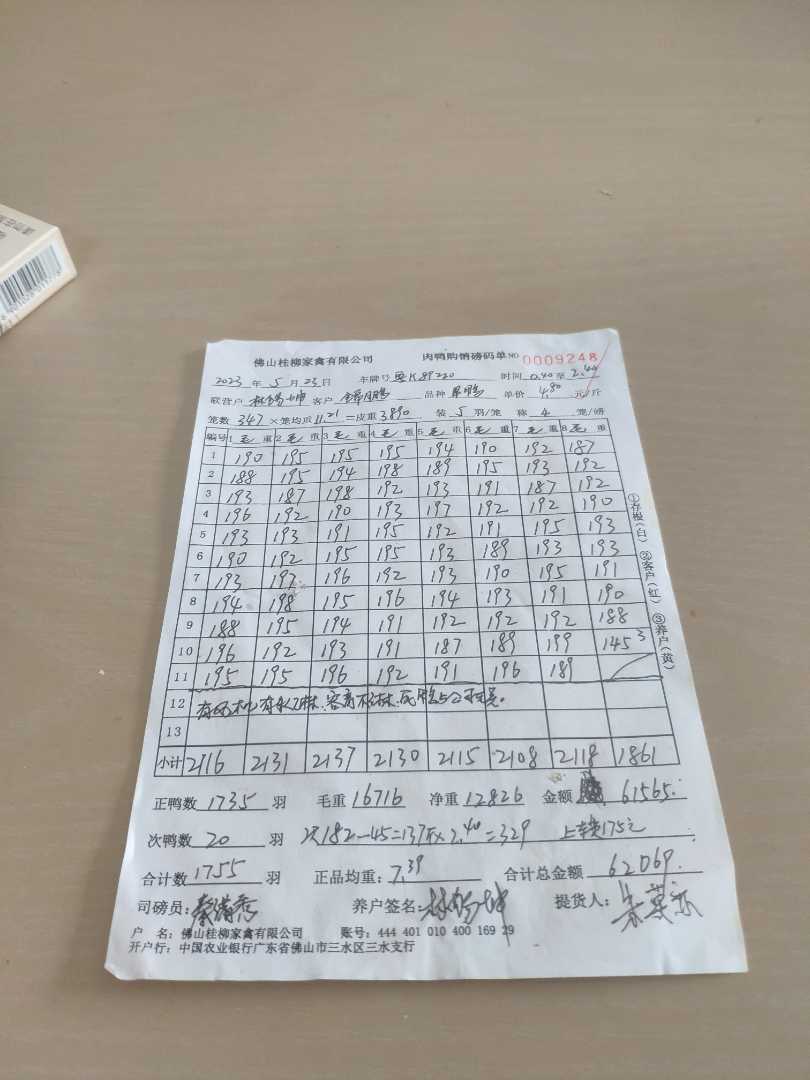 佛山桂柳家禽有限公司 肉鸭购销磅码单 NO 0009248
2023 年 5 月 23 日 车牌号 粤K89220 时间 0.40 至 2.40
联营户 客户 谭月鹏 品种 单价 4.80 元/斤
笼数 347 ×笼均重 11.21 =皮重 3890. 装 5 羽/笼 称 4 笼/磅
编号 1 毛 重 2 毛 重 3 毛 重 4 毛 重 5 毛 重 6 毛 重 7 毛 重 8 毛 重
1 190 195 195 195 194 190 192 187
2 188 195 194 198 189 195 193 192
3 193 187 198 192 193 191 187 192
4 196 192 190 193 197 192 192 190
5 193 193 191 195 192 191 195 193
6 190 192 195 195 193 189 193 193
7 193 197 196 192 193 190 195 191
8 194 198 195 196 194 193 191 190
9 188 195 194 191 192 192 192 188
10 196 192 193 191 187 189 199 145 3
11 195 195 196 192 191 196 189
12
13
小计 2116 2131 2137 2130 2115 2108 2118 1861
①存根(白) ②客户(红) ③养户(黄)
正鸭数 1735 羽 毛重 16716 净重 12826 金额 61565.
次鸭数 20 羽 次182-45=137斤×2.40=329 上车费175元
合计数 1755 羽 正品均重: 7.39 合计总金额 62069.
司磅员: 养户签名: 提货人:
户 名: 佛山桂柳家禽有限公司 账号: 444 401 010 400 169 29
开户行: 中国农业银行广东省佛山市三水区三水支行